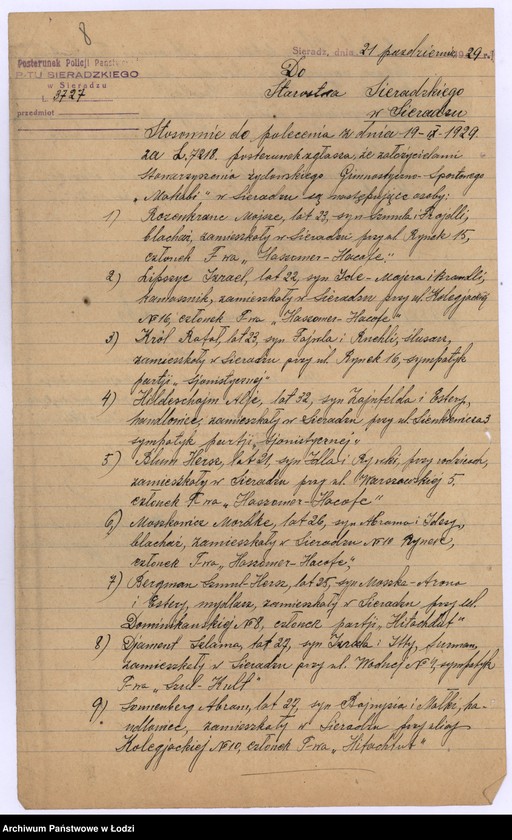 8
Sieradz, dnia 21 październik 1929 r.
Posterunek Policji Państwowej
P-TU SIERADZKIEGO
w Sieradzu
L. 3727
przedmiot
Do
Starostwa Sieradzkiego
w Sieradzu
Stosownie do polecenia z dnia 19-IX-1929
za L. 7218. posterunek zgłasza, że założycielami
stowarzyszenia żydowskiego Gimnastyczno-Sportowego
„Makabi" w Sieradzu są następujące osoby:
1) Rozenkranc Mojsze, lat 23, syn Szmula i Frajdli,
blacharz, zamieszkały w Sieradzu przy ul. Rynek 15,
członek T-wa „Haszomer-Hacofe",
2) Lipszyc Izrael, lat 22, syn Icle-Majera i Brandli,
kamasznik, zamieszkały w Sieradzu przy ul. Kolegjackiej
№ 16, członek T-wa „Haszomer-Hacofe"
3) Król Rafał, lat 23, syn Fajwla i Ruchli, ślusarz,
zamieszkały w Sieradzu przy ul. Rynek 16, sympatyk
partji „Sjonistycznej"
4) Hildeschajm Alje, lat 32, syn Zajnfelda i Estery,
handlowiec, zamieszkały w Sieradzu przy ul. Sienkiewicza 3
sympatyk partji „Sjonistycznej"
5) Blum Hersz, lat 21, syn Idla i Rywki, przy rodzicach,
zamieszkały w Sieradzu przy ul. Warszawskiej 5,
członek T-wa „Haszomer-Hacofe"
6) Moszkowicz Mordke, lat 26, syn Abrama i Idesy,
blacharz, zamieszkały w Sieradzu № 10 Rynek,
członek T-wa „Haszomer-Hacofe",
7) Bergman Szmul-Hersz, lat 25, syn Moszka-Arona
i Estery, mydlarz, zamieszkały w Sieradzu przy ul.
Dominikańskiej № 8, członek partji „Hitachdut"
8) Djament Szlama, lat 27, syn Izraela i Itty, furman,
zamieszkały w Sieradzu przy ul. Wodnej № 7, sympatyk
T-wa „Szul-Kult"
9) Sonnenberg Abram, lat 27, syn Fajwysia i Malki, ha-
ndlowiec, zamieszkały w Sieradzu przy ulicy
Kolegjackiej № 10, członek T-wa „Hitachtut"
Archiwum Państwowe w Łodzi